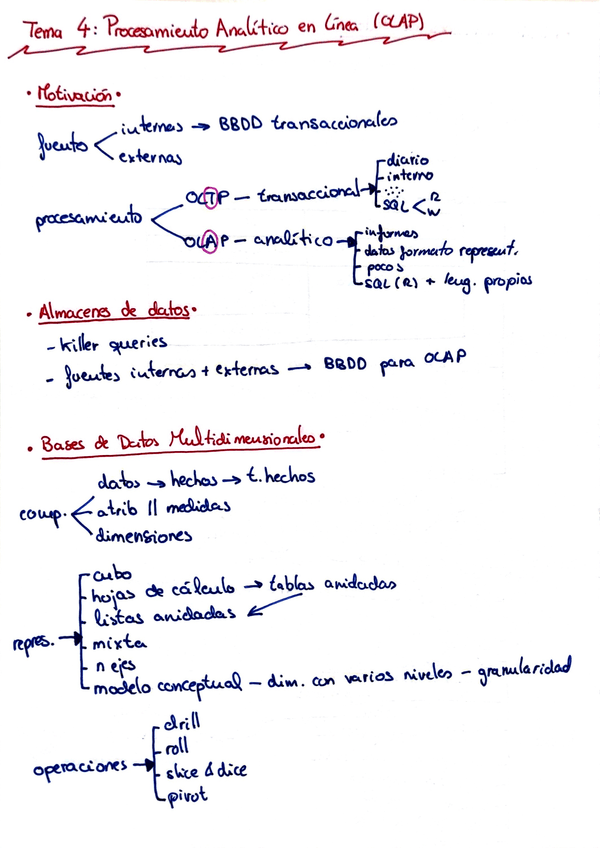 Tema 4: Procesamiento Analítico en Línea (OLAP)
· Motivación ·
fuente < internas → BBDD transaccionales
externas
procesamiento < OLTP – transaccional → - diario
- interno
- SQL < R
W
OLAP – analítico → - informes
- datos formato represent.
- pocos
- SQL (R) + leng. propios
· Almacenes de datos ·
- killer queries
- fuentes internas + externas → BBDD para OLAP
· Bases de Datos Multidimensionales ·
comp. < datos → hechos → t. hechos
atrib || medidas
dimensiones
repres. → - cubo
- hojas de cálculo → tablas anidadas
- listas anidadas
- mixta
- n ejes
- modelo conceptual – dim. con varios niveles – granularidad
operaciones → - drill
- roll
- slice & dice
- pivot